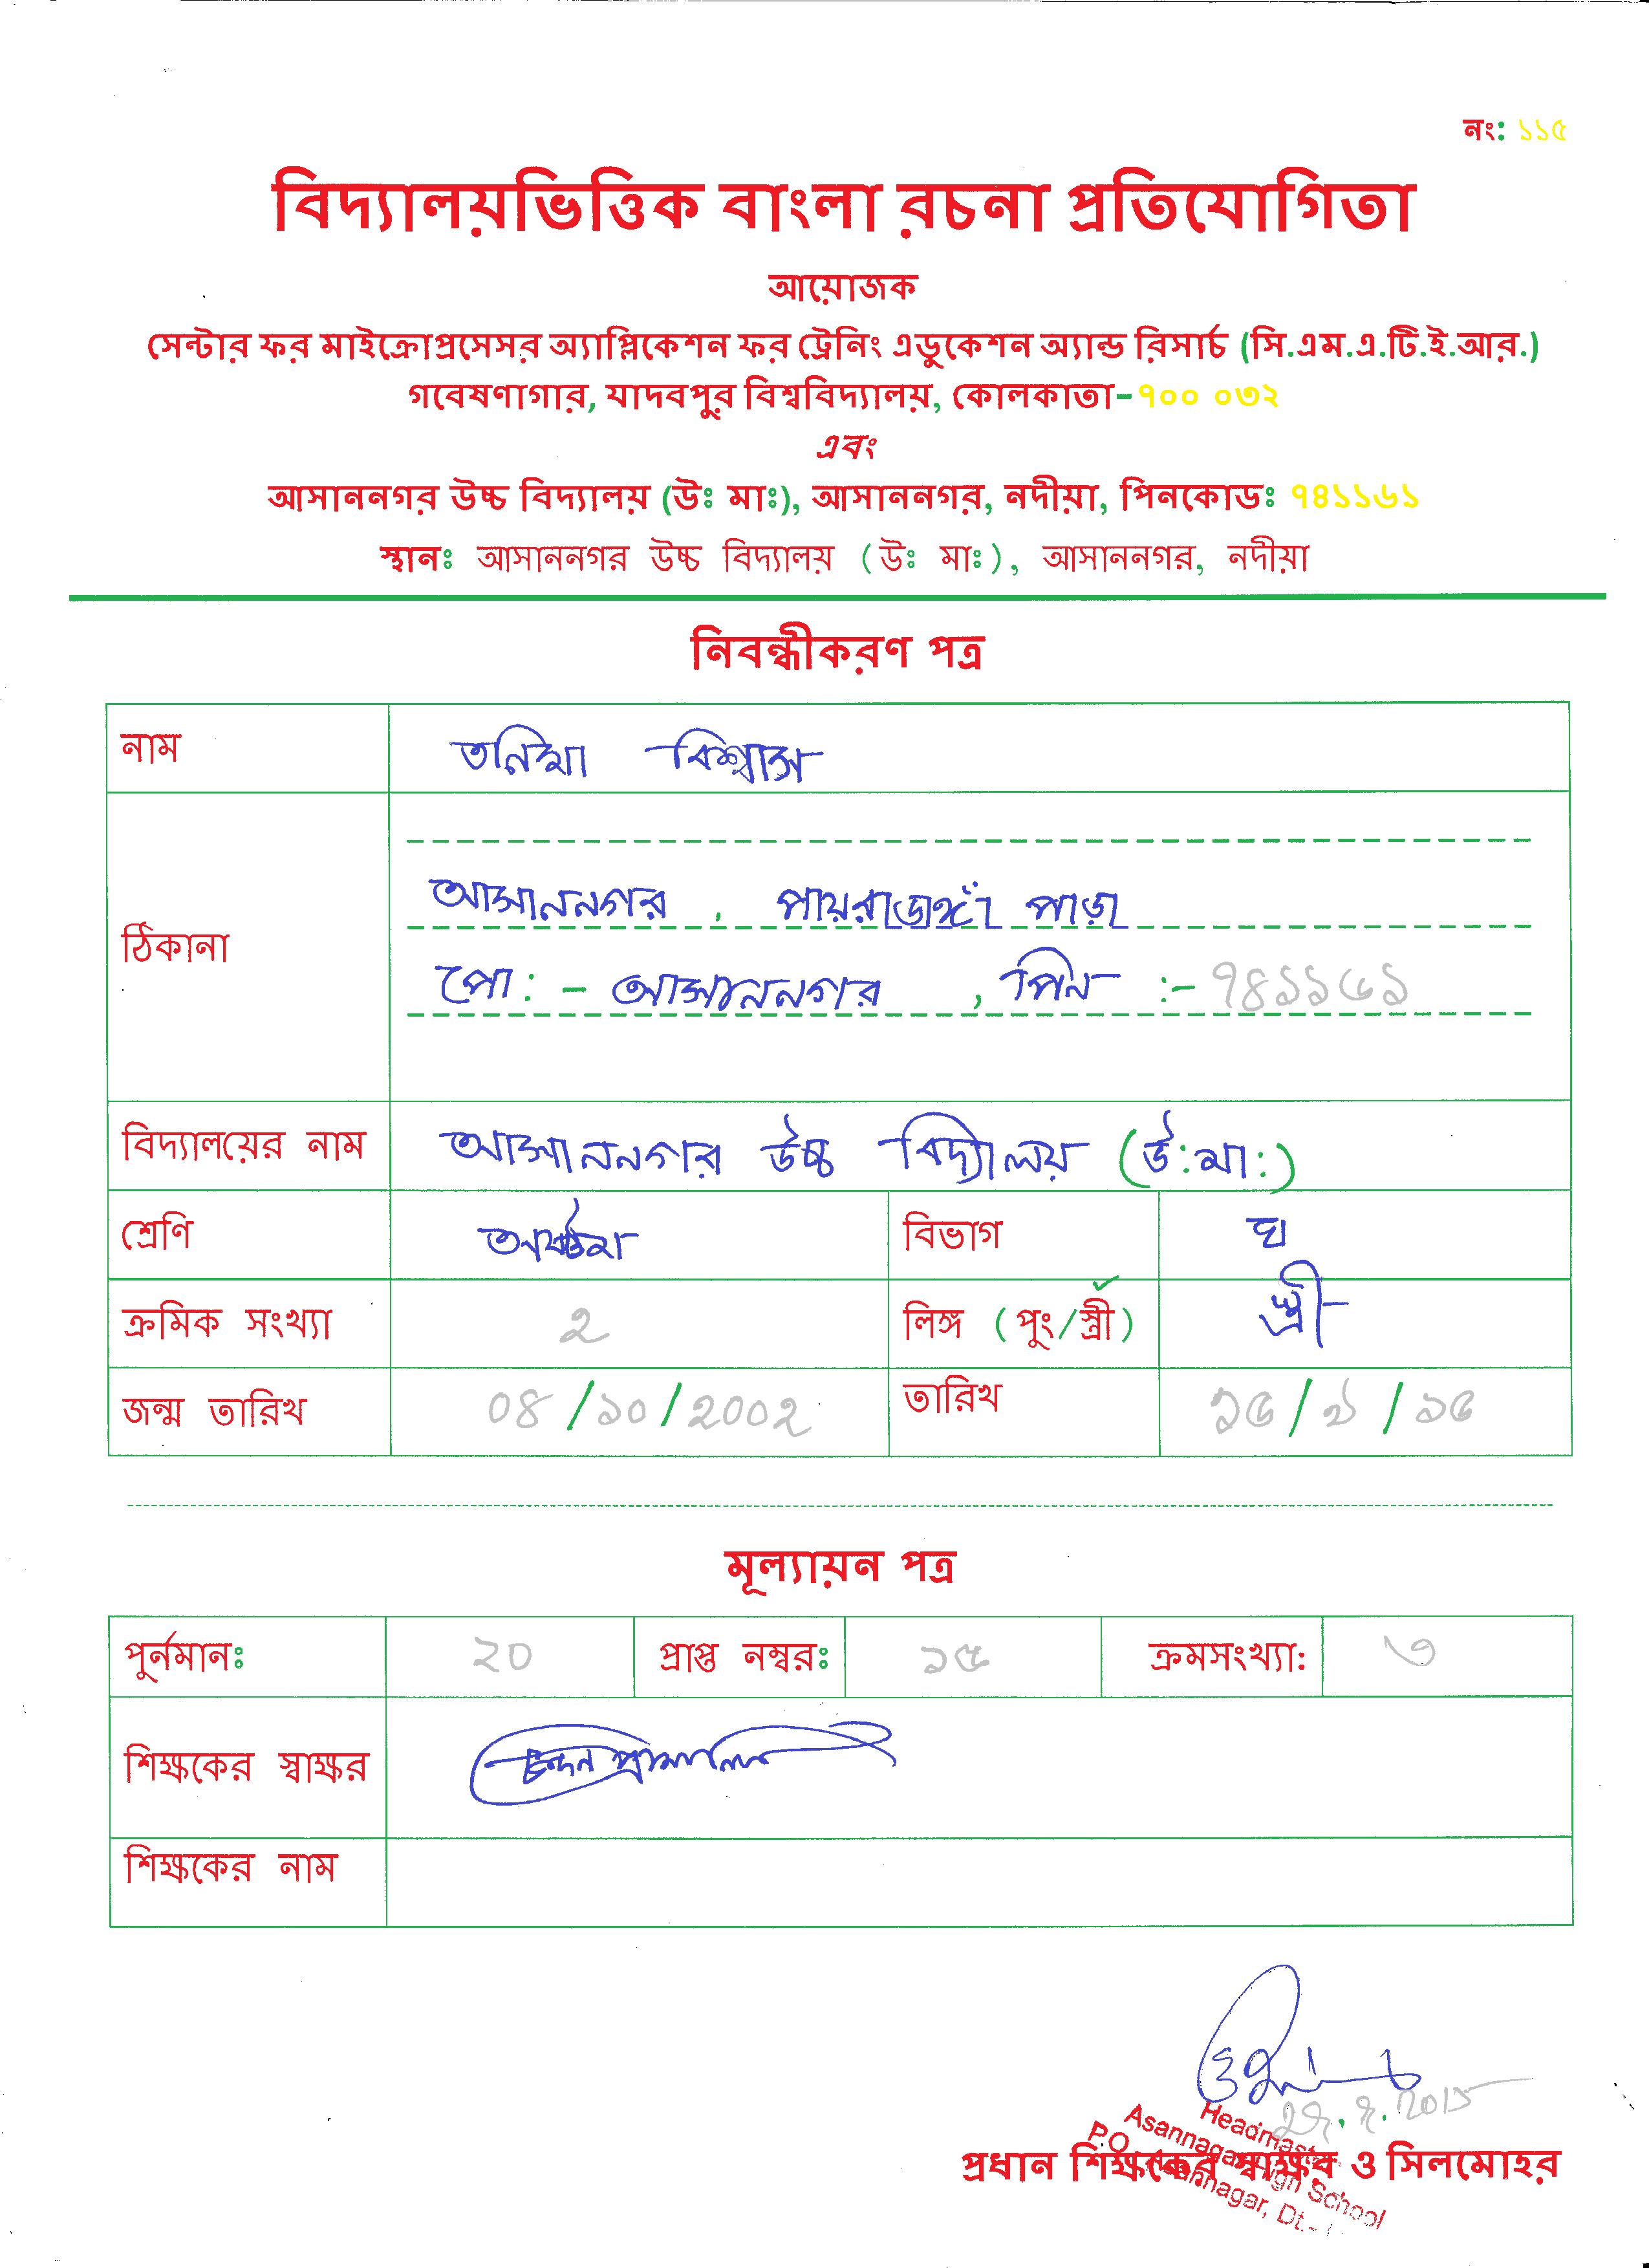 নং: ১১৫
বিদ্যালয়ভিত্তিক বাংলা রচনা প্রতিযোগিতা
আয়োজক
সেন্টার ফর মাইক্রোপ্রসেসর অ্যাপ্লিকেশন ফর ট্রেনিং এডুকেশন অ্যান্ড রিসার্চ (সি.এম.এ.টি.ই.আর.)
গবেষণাগার, যাদবপুর বিশ্ববিদ্যালয়, কোলকাতা-৭০০ ০৩২
এবং
আসাননগর উচ্চ বিদ্যালয় (উঃ মাঃ), আসাননগর, নদীয়া, পিনকোডঃ ৭৪১১৬১
স্থানঃ আসাননগর উচ্চ বিদ্যালয় (উঃ মাঃ), আসাননগর, নদীয়া
নিবন্ধীকরণ পত্র
নাম তনিমা বিশ্বাস
ঠিকানা
আসাননগর , পায়রাডাঙ্গা পাড়া
পো: - আসাননগর , পিন :- ৭৪১১৬১
বিদ্যালয়ের নাম আসাননগর উচ্চ বিদ্যালয় (উ:মা:)
শ্রেণি বিভাগ ঘ
ক্রমিক সংখ্যা ২ লিঙ্গ (পুং/স্ত্রী) স্ত্রী
জন্ম তারিখ ০৪/১০/২০০২ তারিখ ১৫/৯/১৫
মূল্যায়ন পত্র
পুর্নমানঃ ২০ প্রাপ্ত নম্বরঃ ১৫ ক্রমসংখ্যা: ৩
শিক্ষকের স্বাক্ষর চন্দন প্রামানিক
শিক্ষকের নাম
2015
Headmaster
Asannagar High School
P.O. Asannagar, Dt.-
প্রধান শিক্ষকের স্বাক্ষর ও সিলমোহর